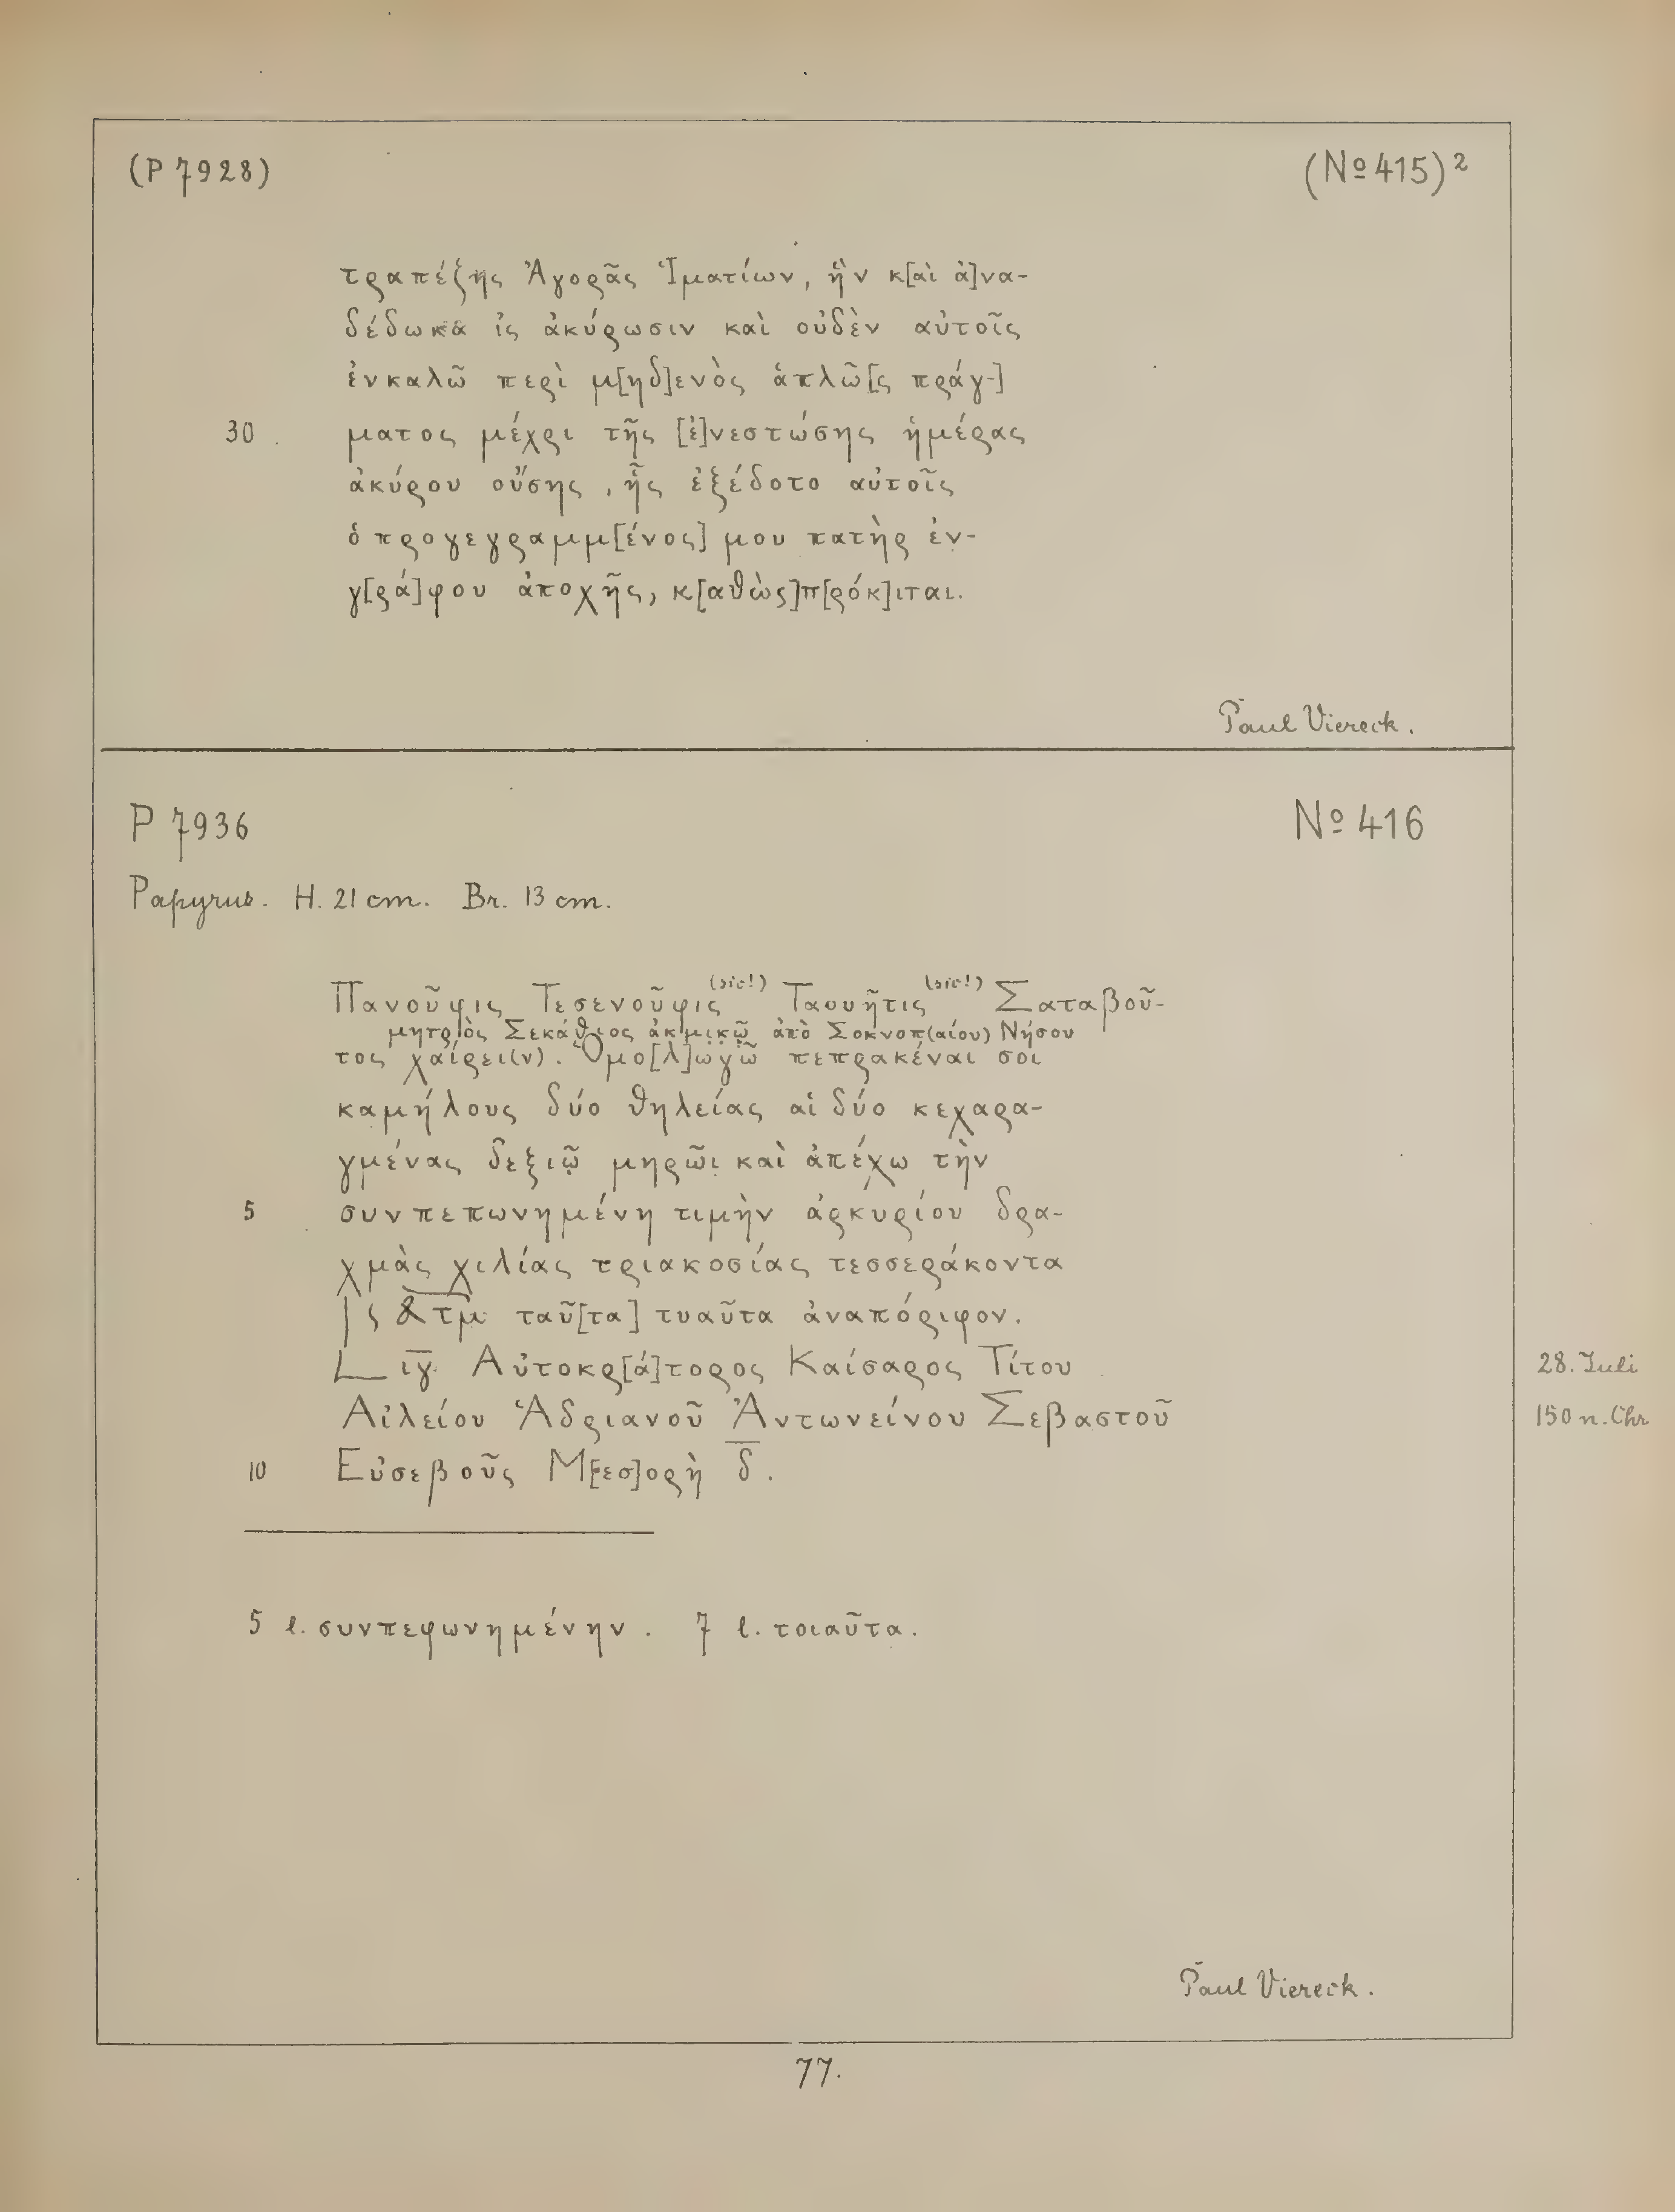 (P 7928) (№ 415)²
τραπέζης Ἀγορᾶς Ἱματίων, ἣν κ[αὶ ἀ]να-
δέδωκα ἰς ἀκύρωσιν καὶ οὐδὲν αὐτοῖς
ἐνκαλῶ περὶ μ[ηδ]ενὸς ἁπλῶ[ς πράγ-]
30 ματος μέχρι τῆς [ἐ]νεστώσης ἡμέρας
ἀκύρου οὔσης, ἧς ἐξέδοτο αὐτοῖς
ὁ προγεγραμμ[ένος] μου πατὴρ ἐν-
γ[ρά]φου ἀποχῆς, κ[αθὼς] π[ρόκ]ιται.
Paul Viereck.
P 7936 № 416
Papyrus. H. 21 cm. Br. 13 cm.
Πανοῦφις Τεσενοῦφις (sic!) Ταουῆτις (sic!) Σαταβοῦ-
μητρὸς Σεκάθιος ἀκμικῷ ἀπὸ Σοκνοπ(αίου) Νήσου
τος χαίρει(ν). Ὁμο[λ]ωγῶ πεπρακέναι σοι
καμήλους δύο θηλείας αἱ δύο κεχαρα-
γμένας δεξιῷ μηρῶι καὶ ἀπέχω τὴν
5 συνπεπωνημένη τιμὴν ἀρκυρίου δρα-
χμὰς χιλίας τριακοσίας τεσσεράκοντα
ταῦ[τα] τυαῦτα ἀναπόριφον.
L ιγ̅ Αὐτοκρ[ά]τορος Καίσαρος Τίτου 28. Juli
Αἰλείου Ἁδριανοῦ Ἀντωνείνου Σεβαστοῦ 150 n. Chr
10 Εὐσεβοῦς Μ[εσ]ορὴ δ̅.
5 l. συνπεφωνημένην. 7 l. τοιαῦτα.
Paul Viereck.
77.